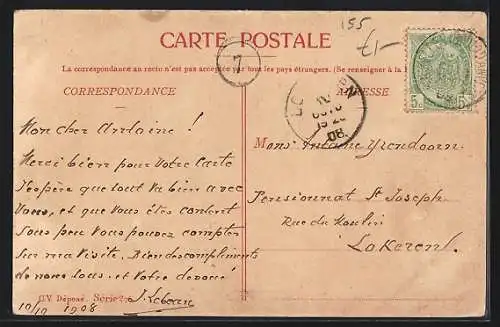 155
£1-
CARTE POSTALE
7
La correspondance au recto n'est pas acceptée par tous les pays étrangers. (Se renseigner à la
CORRESPONDANCE
ADRESSE
5c 5c
Mon cher Antoine !
Merci bien pour votre Carte
J'espère que tout va bien avec
Vous, et que vous êtes content
Sous peu vous pouvez compter
sur ma visite. Bien des compliments
de nous tous. et votre dévoué
J. Lebeau
10/10 1908
G.V. Déposé. Série
Mons Antoine
Pensionnat St Joseph
Rue du Moulin
Lokeren
08